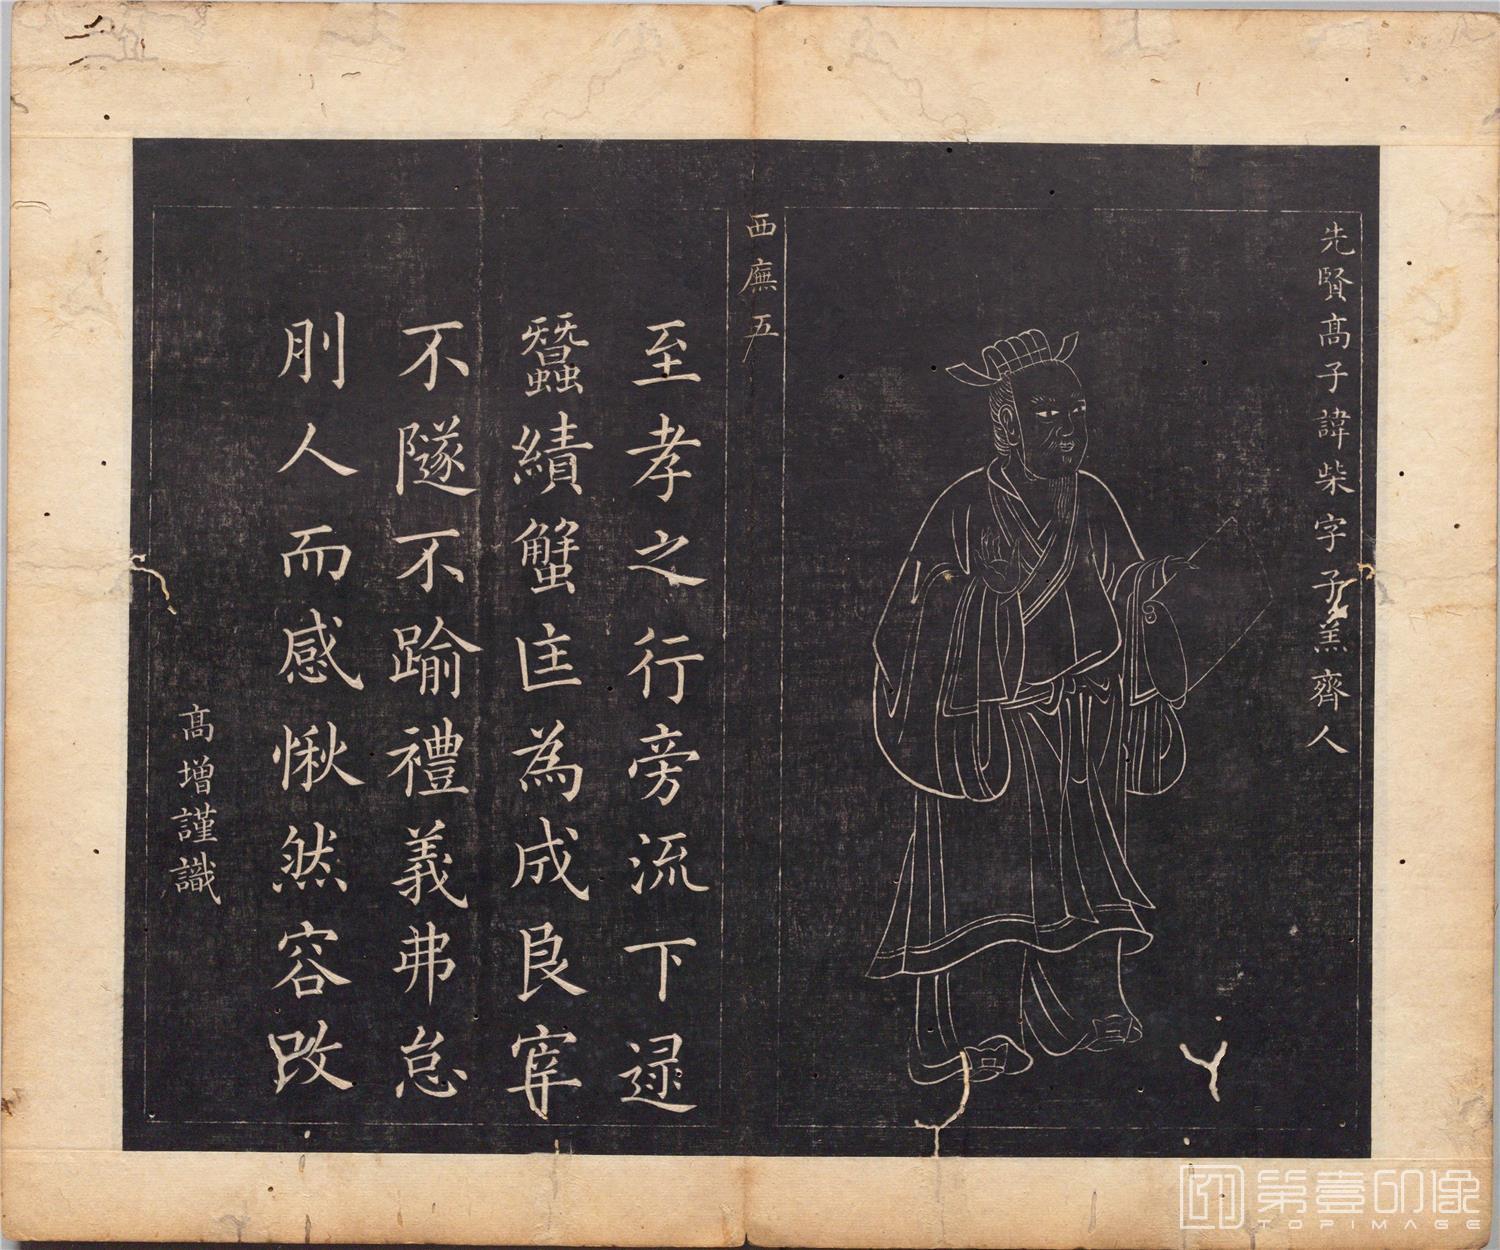 先賢高子諱柴字子羔齊人
西廡五
至孝之行旁流下逯
蠶績蟹匡為成良宰
不隧不踰禮義弗怠
刖人而感愀然容改
高增謹識
第壹印像
TOPIMAGE